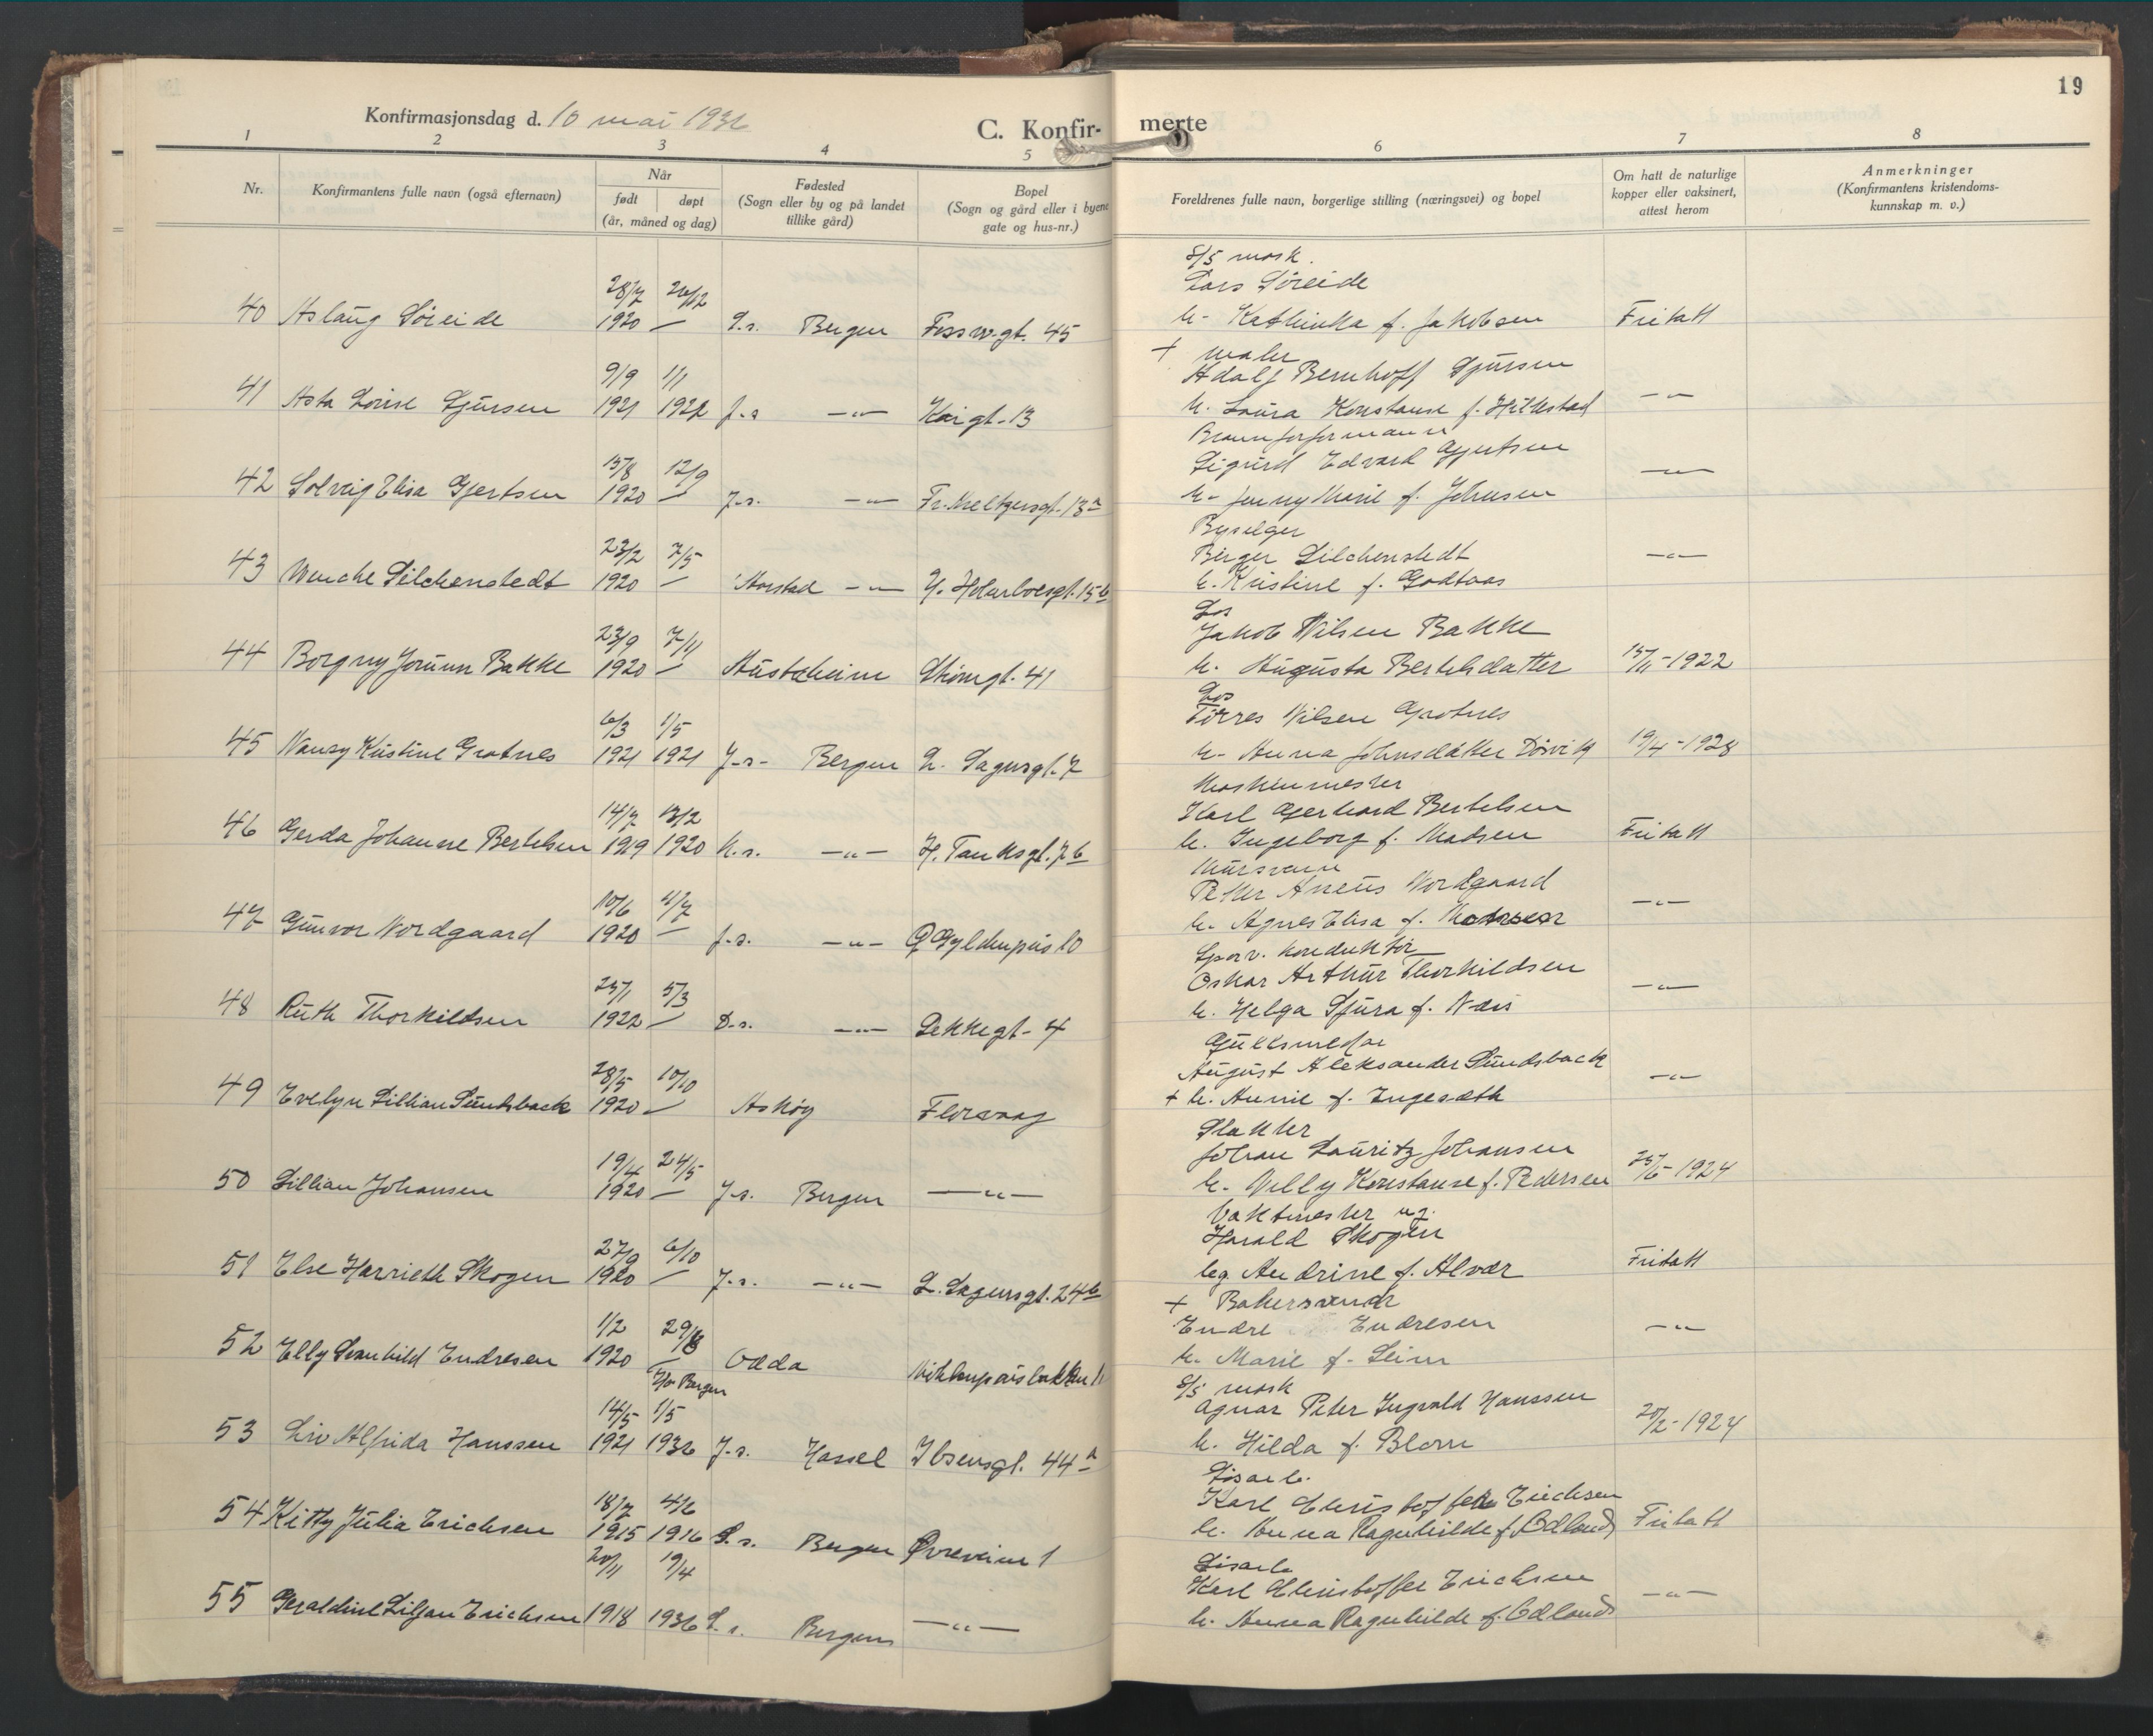 19
Konfirmasjonsdag d. 10 mai 1936
C. Konfir-merte
1 2 3 4 5 6 7 8
Nr.
Konfirmantens fulle navn (også efternavn)
Når
født døpt
(år, måned og dag)
Fødested
(Sogn eller by og på landet
tillike gård)
Bopel
(Sogn og gård eller i byene
gate og hus-nr.)
Foreldrenes fulle navn, borgerlige stilling (næringsvei) og bopel
Om hatt de naturlige
kopper eller vaksinert,
attest herom
Anmerkninger
(Konfirmantens kristendoms-
kunnskap m. v.)
28/7 26/12 S/S mask.
Lars Søreide
40 Aslaug Søreide 1920 — D.s. Bergen Fossw.gt. 45 h. Kathinka f. Jakobsen Fritatt
9/9 1/1 + maler
Adolf Bernhoff Gjursen
41 Asta Lovise Gjursen 1921 1922 J.s. —"— Kaigt. 13 h. Laura Konstanse f. Hilkstad —"—
15/8 12/9 Brannforformann
Sigurd Edvard Gjertsen
42 Solveig Elisa Gjertsen 1920 — J.s. —"— Fr. Meltzersgt. 13a h. Jenny Marie f. Johnsen —"—
23/2 7/5 Byselger
Birger Silchenstedt
43 Wenche Silchenstedt 1920 — Harstad —"— h. Kristine f. Godtaas —"—
23/9 7/11 Los
Jakob Nilsen Bakke
44 Borgny Jorunn Bakke 1920 — Austrheim h. Augusta Bertelsdatter 15/11-1922
6/3 1/5 Los
Tørres Nilsen Grotnes
45 Nancy Kristine Grotnes 1921 1921 J.s. Bergen L. Sagensgt. 7 h. Anna Johnsdatter Dørvik 19/4-1928
14/7 13/2 Maskinmester
Karl Gerhard Bertelsen
46 Gerda Johanne Bertelsen 1919 1920 N.s. —"— H. Tanksgt. 7b h. Ingeborg f. Madsen Fritatt
10/6 4/7 Mursvenn
Petter Anæus Nordgaard
47 Gunvor Nordgaard 1920 — J.s. —"— h. Agnes Elisa f. —"—
25/1 5/3 Sporv. konduktør
Oskar Arthur Thorkildsen
48 Ruth Thorkildsen 1922 — D.s. —"— Bekkegt. 4 h. Helga Sjura f. Næs —"—
28/5 10/10 Gullsmed
August Aleksander Sundsback
49 Evelyn Lillian Sundsback 1920 — Askøy Florvaag + h. Annie f. Ingesæth —"—
19/4 24/5 Slakter
Johan Lauritz Johansen
50 Lillian Johansen 1920 — J.s. Bergen —"— h. Willy Konstanse f. Pedersen 25/6-1924
27/9 6/10 Vaktmester ug.
Harald Skogen
51 Else Harrieth Skogen 1920 — J.s. —"— L. Sagensgt. 24b og Andrine f. Alvær Fritatt
1/2 29/8 + Bakersvend
Endre Endresen
52 Elly Svanhild Endresen 1920 — Odda h. Marie f. Leim —"—
14/5 1/5 S/S mask
Agnar Peter Ingvald Hanssen
53 Liv Alfrida Hanssen 1921 1936 J.s. Hassel Ibsensgt. 44a h. Hilda f. Blom 20/2-1924
18/7 4/6 Løsarb.
Karl Christoffer Erichsen
54 Kitty Julia Erichsen 1915 1916 D.s. Bergen Øvreveien 1 h. Anna Ragnhilde f. Ødland Fritatt
20/11 19/4 Løsarb
Karl Christoffer Erichsen
55 Geraldine Liljan Erichsen 1918 1936 D.s. Bergen —"— h. Anna Ragnhilde f. Ødland —"—